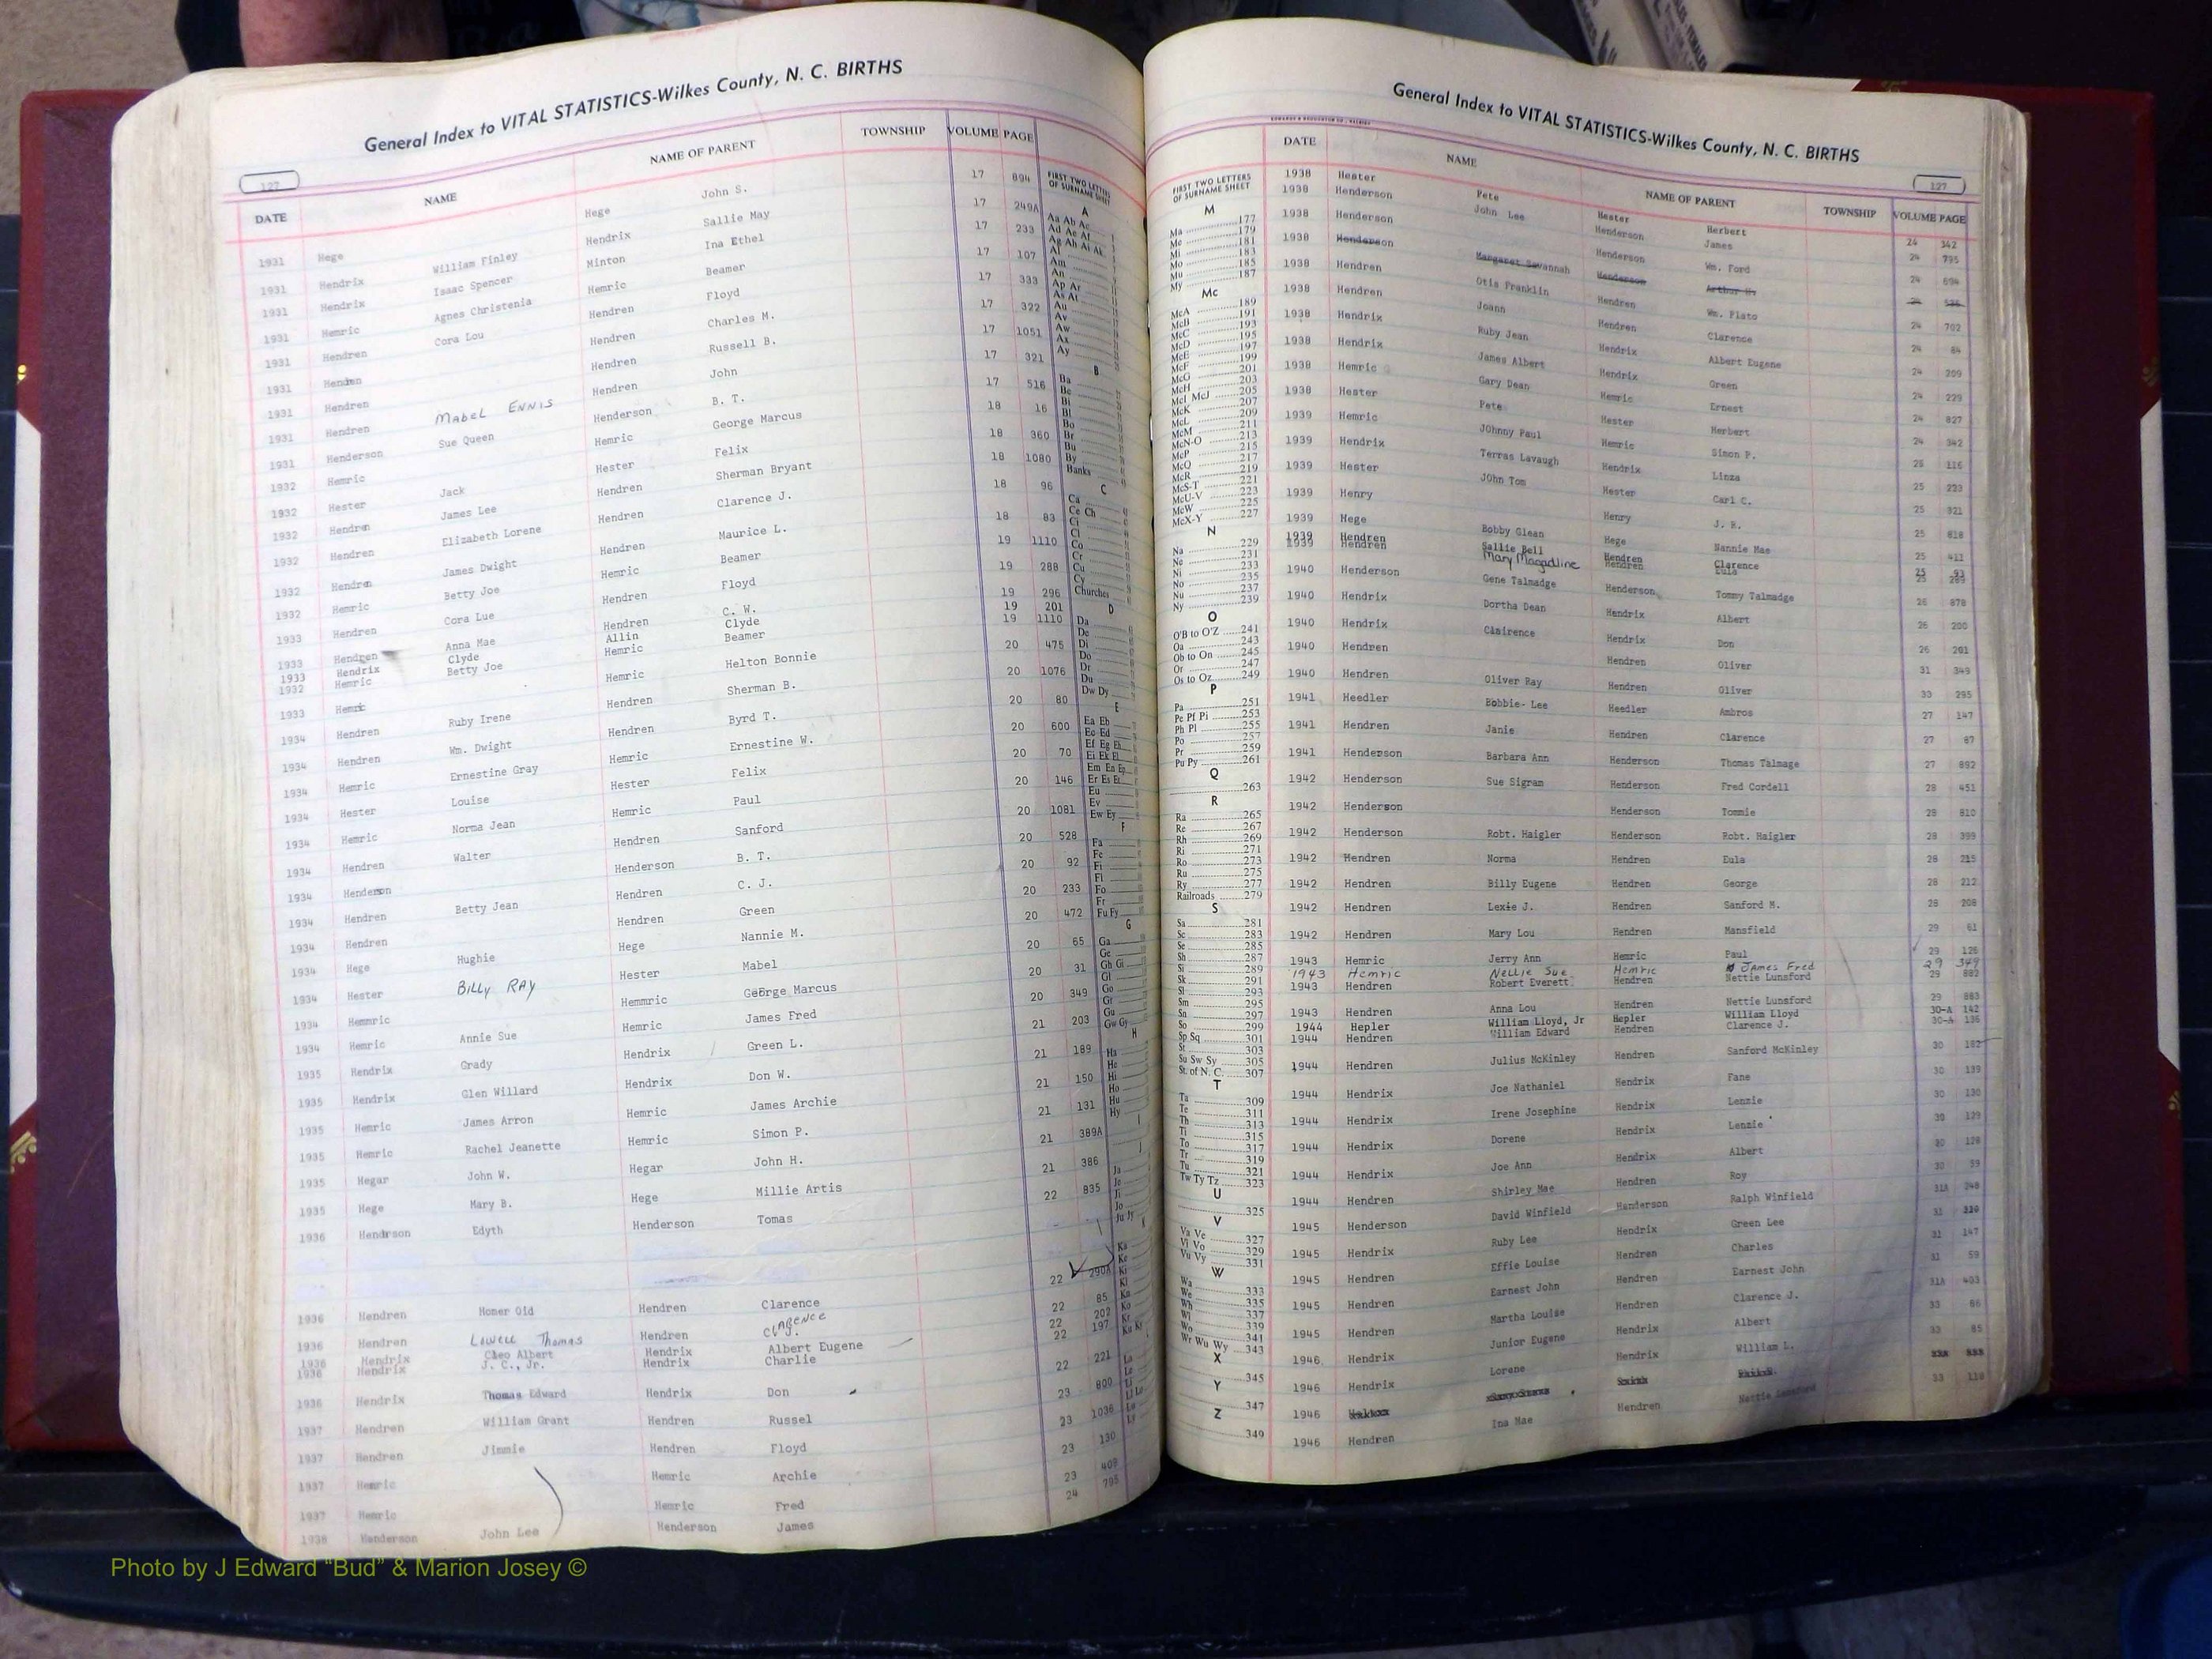 General Index to VITAL STATISTICS-Wilkes County, N. C. BIRTHS
127
DATE NAME NAME OF PARENT TOWNSHIP VOLUME PAGE
1931 Hege William Finley Hege John S. 17 894
1931 Hendrix Isaac Spencer Hendrix Sallie May 17 249A
1931 Hendrix Agnes Christenia Minton Ina Ethel 17 233
1931 Hemric Cora Lou Hemric Beamer 17 107
1931 Hendren Hendren Floyd 17 333
1931 Hendren Hendren Charles M. 17 322
1931 Hendren MABEL ENNIS Hendren Russell B. 17 1051
1931 Hendren Sue Queen Hendren John 17 321
1931 Henderson Henderson B. T. 17 516
1932 Hemric Hemric George Marcus 18 16
1932 Hester Jack Hester Felix 18 360
1932 Hendren James Lee Hendren Sherman Bryant 18 1080
1932 Hendren Elizabeth Lorene Hendren Clarence J. 18 96
1932 Hendren James Dwight Hendren Maurice L. 18 83
1932 Hemric Betty Joe Hemric Beamer 19 1110
1933 Hendren Cora Lue Hendren Floyd 19 288
1933 Hendren Anna Mae Hendren C. W. 19 296
1933 Hendrix Clyde Allin Clyde 19 201
1932 Hemric Betty Joe Hemric Beamer 19 1110
1933 Hemric Hemric Helton Bonnie 20 475
1934 Hendren Ruby Irene Hendren Sherman B. 20 1076
1934 Hendren Wm. Dwight Hendren Byrd T. 20 80
1934 Hemric Ernestine Gray Hemric Ernestine W. 20 600
1934 Hester Louise Hester Felix 20 70
1934 Hemric Norma Jean Hemric Paul 20 146
1934 Hendren Walter Hendren Sanford 20 1081
1934 Henderson Henderson B. T. 20 528
1934 Hendren Betty Jean Hendren C. J. 20 92
1934 Hendren Hendren Green 20 233
1934 Hege Hughie Hege Nannie M. 20 472
1934 Hester BILLY RAY Hester Mabel 20 65
1934 Hemmric Hemmric George Marcus 20 31
1934 Hemric Annie Sue Hemric James Fred 20 349
1935 Hendrix Grady Hendrix Green L. 21 203
1935 Hendrix Glen Willard Hendrix Don W. 21 189
1935 Hemric James Arron Hemric James Archie 21 150
1935 Hemric Rachel Jeanette Hemric Simon P. 21 131
1935 Hegar John W. Hegar John H. 21 389A
1935 Hege Mary B. Hege Millie Artis 21 386
1936 Hendrson Edyth Henderson Tomas 22 835
1936 Hendren Homer Oid Hendren Clarence 22 290A
1936 Hendren Lowell Thomas Hendren CLARENCE J. 22 85
1936 Hendrix Cleo Albert Hendrix Albert Eugene 22 202
1936 Hendrix J. C., Jr. Hendrix Charlie 22 197
1936 Hendrix Thomas Edward Hendrix Don 22 221
1937 Hendren William Grant Hendren Russel 23 800
1937 Hendren Jimmie Hendren Floyd 23 1036
1937 Hemric Hemric Archie 23 130
1937 Hemric Hemric Fred 23 409
1938 Henderson John Lee Henderson James 24 795
FIRST TWO LETTERS
OF SURNAME SHEET
A
Aa Ab Ac
Ad Ae Af
Ag Ah Ai Ak
Al
Am
An
Ap Ar
As At
Au
Av
Aw
Ax
Ay
B
Ba
Be
Bi
Bl
Bo
Br
Bu
By
Banks
C
Ca
Ce Ch
Ci
Cl
Co
Cr
Cu
Cy
Churches
D
Da
De
Di
Do
Dr
Du
Dw Dy
E
Ea Eb
Ec Ed
Ef Eg Eh
Ei Ek El
Em En Ep
Er Es Et
Eu
Ev
Ew Ey
F
Fa
Fe
Fi
Fl
Fo
Fr
Fu Fy
G
Ga
Ge
Gh Gi
Gl
Go
Gr
Gu
Gw Gy
H
Ha
He
Hi
Ho
Hu
Hy
I
J
Ja
Je
Ji
Jo
Ju Jy
K
Ka
Ke
Ki
Kl
Kn
Ko
Kr
Ku Ky
La
Le
Li
Ll Lo
Lu
Ly
General Index to VITAL STATISTICS-Wilkes County, N. C. BIRTHS
127
FIRST TWO LETTERS
OF SURNAME SHEET
M
Ma 177
Me 179
Mi 181
Mo 183
Mu 185
My 187
Mc
McA 189
McB 191
McC 193
McD 195
McE 197
McF 199
McG 201
McH 203
McI McJ 205
McK 207
McL 209
McM 211
McN-O 213
McP 215
McQ 217
McR 219
McS-T 221
McU-V 223
McW 225
McX-Y 227
N
Na 229
Ne 231
Ni 233
No 235
Nu 237
Ny 239
O
O'B to O'Z 241
Oa 243
Ob to On 245
Or 247
Os to Oz 249
P
Pa 251
Pe Pf Pi 253
Ph Pl 255
Po 257
Pr 259
Pu Py 261
Q
263
R
Ra 265
Re 267
Rh 269
Ri 271
Ro 273
Ru 275
Ry 277
Railroads 279
S
Sa 281
Sc 283
Se 285
Sh 287
Si 289
Sk 291
Sl 293
Sm 295
Sn 297
So 299
Sp Sq 301
St 303
Su Sw Sy 305
St. of N. C. 307
T
Ta 309
Te 311
Th 313
Ti 315
To 317
Tr 319
Tu 321
Tw Ty Tz 323
U
325
V
Va Ve 327
Vi Vo 329
Vu Vy 331
W
Wa 333
We 335
Wh 337
Wi 339
Wo 341
Wr Wu Wy 343
X
345
Y
347
Z
349
DATE NAME NAME OF PARENT TOWNSHIP VOLUME PAGE
1938 Hester Pete Hester Herbert 24 342
1938 Henderson John Lee Henderson James 24 795
1938 Henderson Henderson Wm. Ford 24 694
1938 Henderson Margaret Savannah Henderson Arthur 24
1938 Hendren Otis Franklin Hendren Wm. Plato 24 702
1938 Hendren Joann Hendren Clarence 24 84
1938 Hendrix Ruby Jean Hendrix Albert Eugene 24 209
1938 Hendrix James Albert Hendrix Green 24 229
1938 Hemric Gary Dean Hemric Ernest 24 827
1938 Hester Pete Hester Herbert 24 342
1939 Hemric JOhnny Paul Hemric Simon P. 25 116
1939 Hendrix Terras Lavaugh Hendrix Linza 25 223
1939 Hester JOhn Tom Hester Carl C. 25 321
1939 Henry Henry J. R. 25 818
1939 Hege Bobby Glean Hege Nannie Mae 25 411
1939 Hendren Sallie Bell Hendren Clarence 25 93
1939 Hendren Mary Magadline Hendren Eula 25 289
1940 Henderson Gene Talmadge Henderson Tommy Talmadge 26 878
1940 Hendrix Dortha Dean Hendrix Albert 26 200
1940 Hendrix Clairence Hendrix Don 26 201
1940 Hendren Hendren Oliver 31 349
1940 Hendren Oliver Ray Hendren Oliver 33 295
1941 Heedler Bobbie- Lee Heedler Ambros 27 147
1941 Hendren Janie Hendren Clarence 27 87
1941 Henderson Barbara Ann Henderson Thomas Talmage 27 892
1942 Henderson Sue Sigram Henderson Fred Cordell 28 451
1942 Henderson Henderson Tommie 28 810
1942 Henderson Robt. Haigler Henderson Robt. Haigler 28 399
1942 Hendren Norma Hendren Eula 28 215
1942 Hendren Billy Eugene Hendren George 28 212
1942 Hendren Lexie J. Hendren Sanford M. 28 208
1942 Hendren Mary Lou Hendren Mansfield 29 61
1943 Hemric Jerry Ann Hemric Paul 29 126
1943 Hemric Nellie Sue Hemric James Fred 29 349
1943 Hendren Robert Everett Hendren Nettie Lunsford 29 882
1943 Hendren Anna Lou Hendren Nettie Lunsford 29 883
1944 Hepler William Lloyd, Jr Hepler William Lloyd 30-A 142
1944 Hendren William Edward Hendren Clarence J. 30-A 136
1944 Hendren Julius McKinley Hendren Sanford McKinley 30 182
1944 Hendrix Joe Nathaniel Hendrix Fane 30 139
1944 Hendrix Irene Josephine Hendrix Lenzie 30 130
1944 Hendrix Dorene Hendrix Lenzie 30 129
1944 Hendrix Joe Ann Hendrix Albert 30 128
1944 Hendren Shirley Mae Hendren Roy 30 59
1945 Henderson David Winfield Henderson Ralph Winfield 31A 248
1945 Hendrix Ruby Lee Hendrix Green Lee 31
1945 Hendren Effie Louise Hendren Charles 31 147
1945 Hendren Earnest John Hendren Earnest John 31 59
1945 Hendren Martha Louise Hendren Clarence J. 31A 403
1946 Hendrix Junior Eugene Hendrix Albert 33 86
1946 Hendrix Lorene Hendrix William L. 33 85
1946
1946 Hendren Ina Mae Hendren Nettie Lunsford 33 118
Photo by J Edward “Bud” & Marion Josey ©